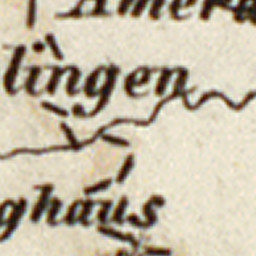 Amerd
lingen
ghaus